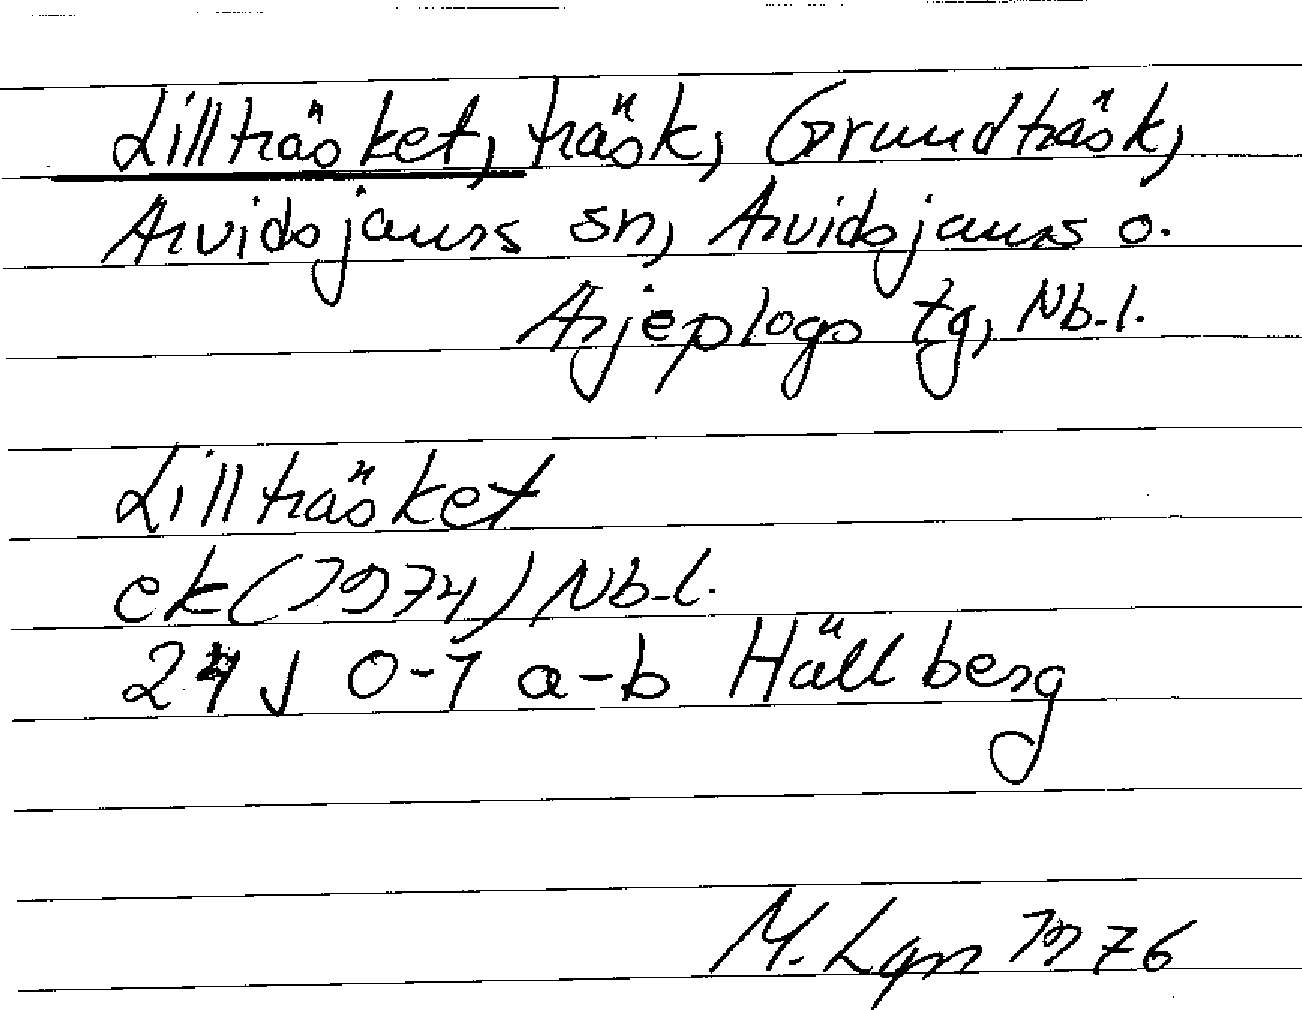 Lillträsket, träsk, Grundträsk,
Arvidsjaurs sn, Arvidsjaurs o.
Arjeplogs tg, Nb.l.
Lillträsket
ek (1974) Nb.l.
24 J 0-1 a-b Hällberg
M. Lgn 1976